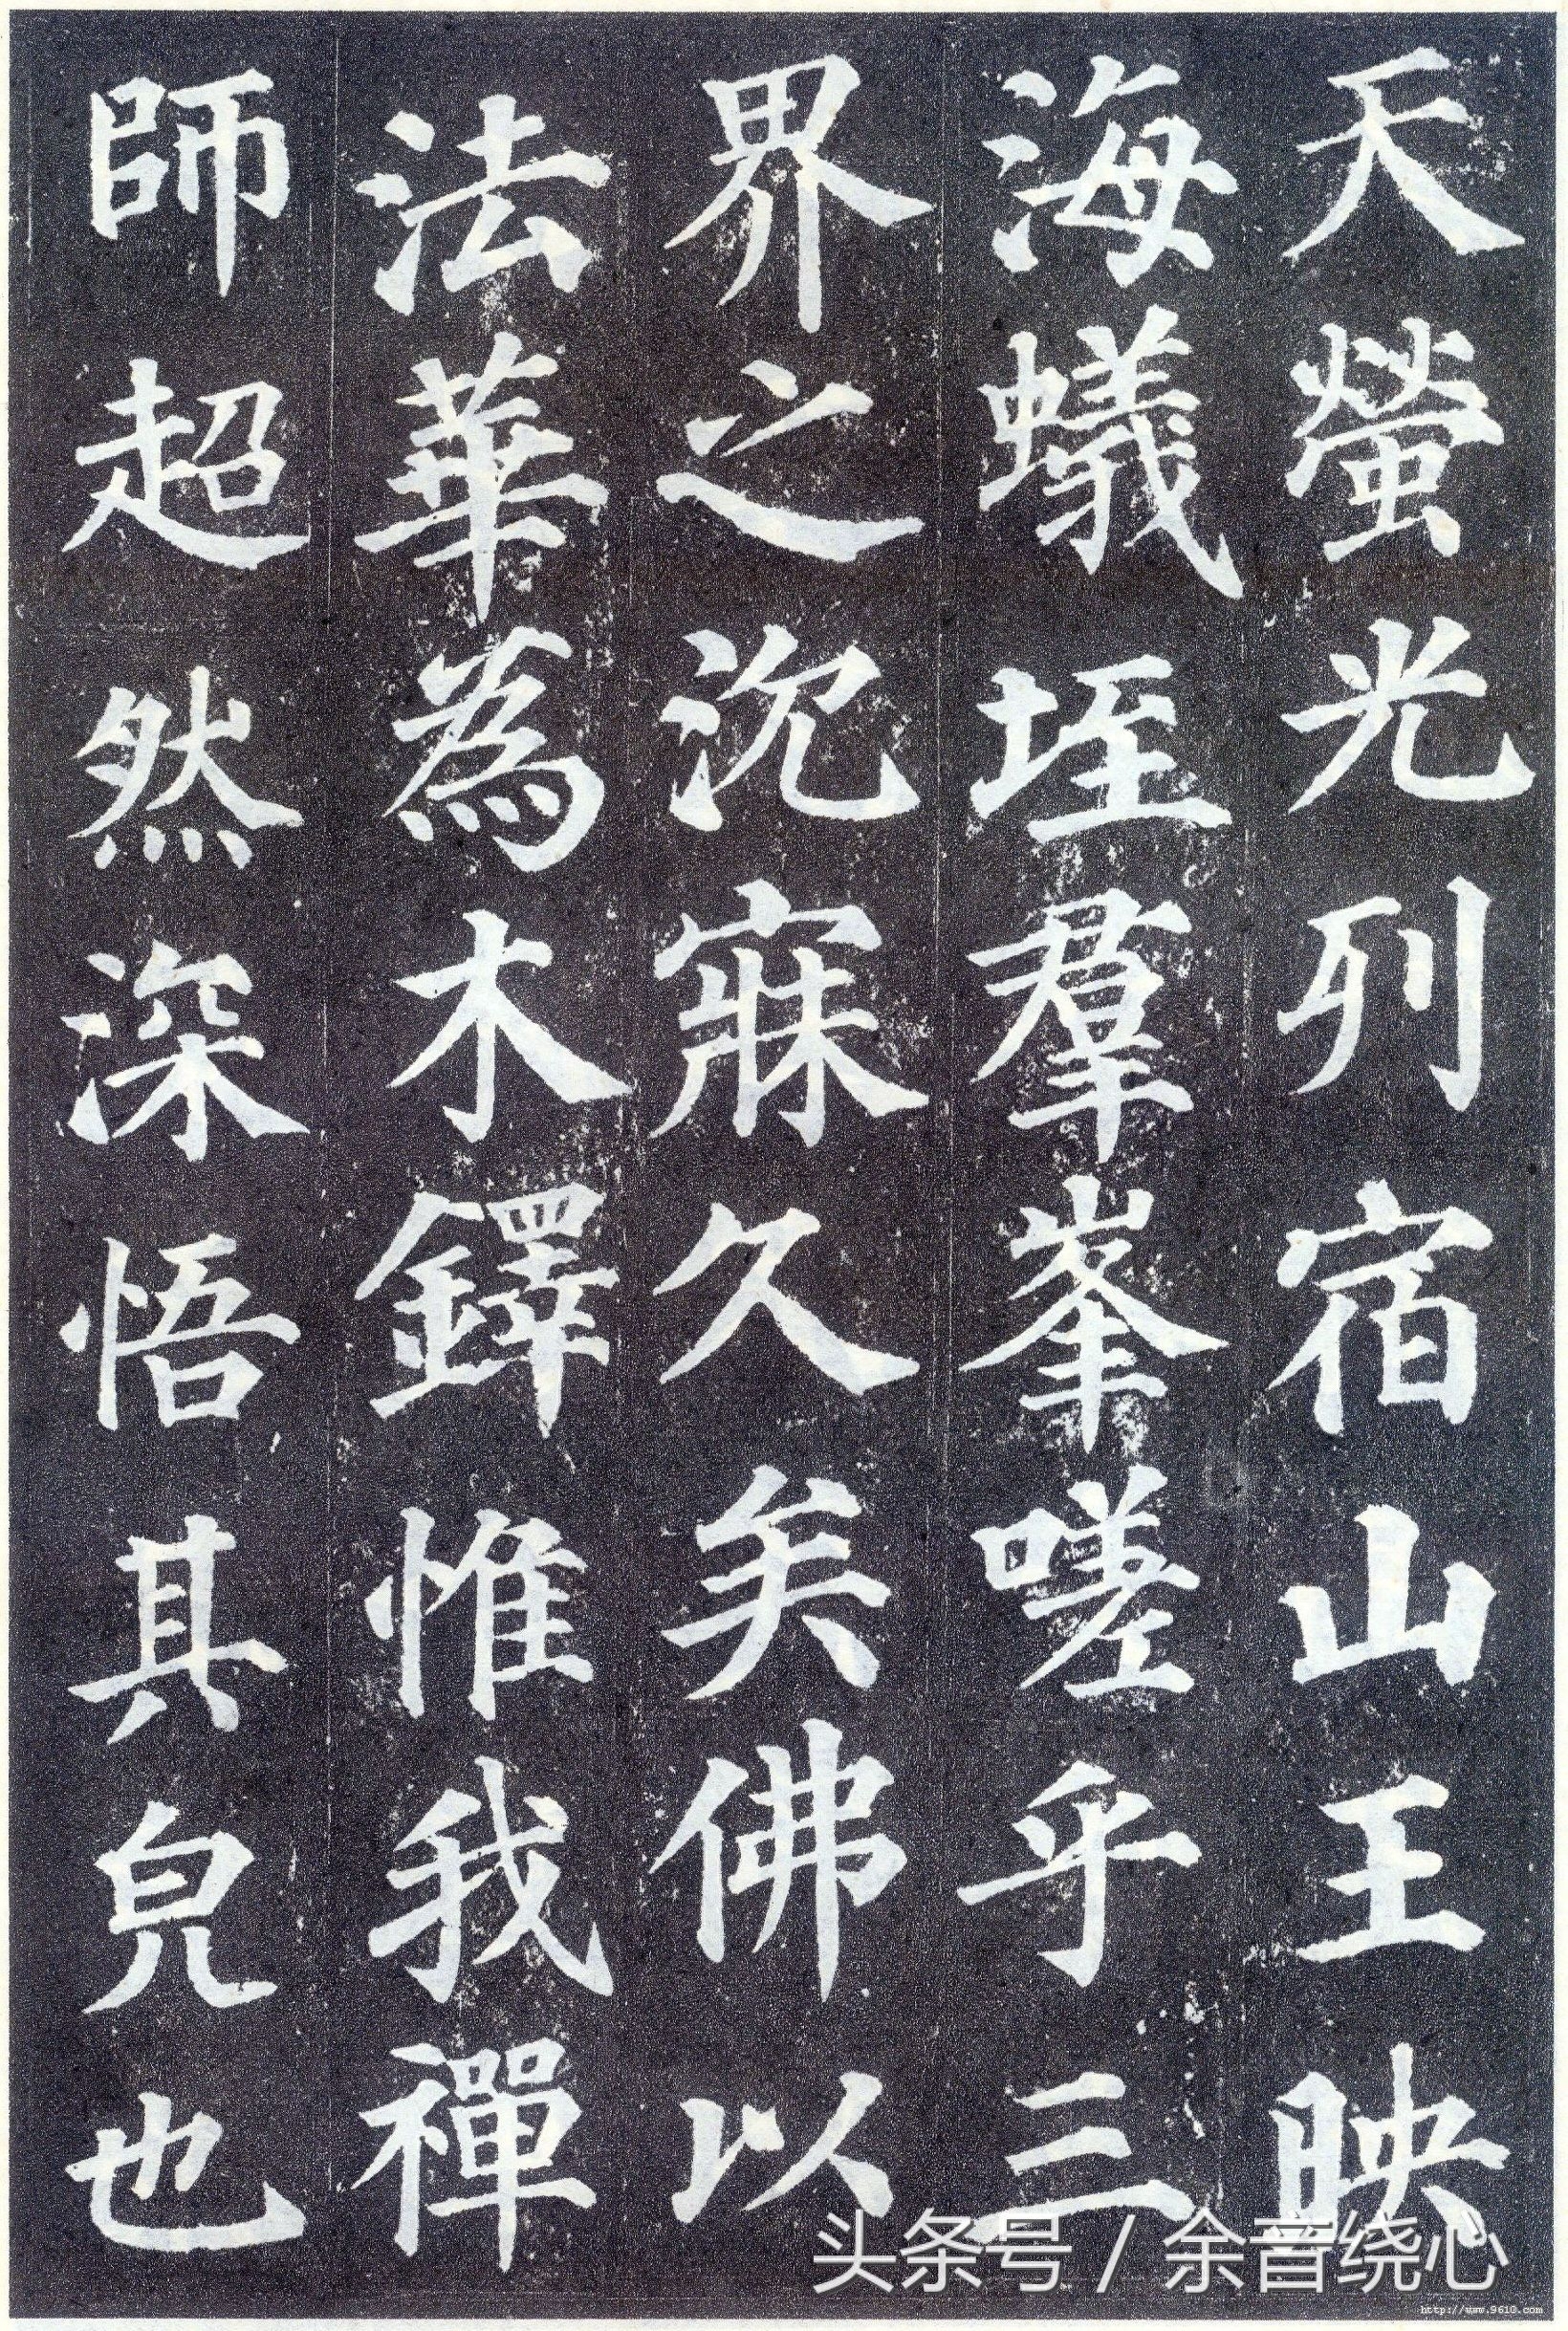 天螢光列宿山王映
海蟻垤羣峯嗟乎三
界之沉寐久矣佛以
法華為木鐸惟我禪
師超然深悟其皃也
头条号 / 余音绕心
http://www.9610.com